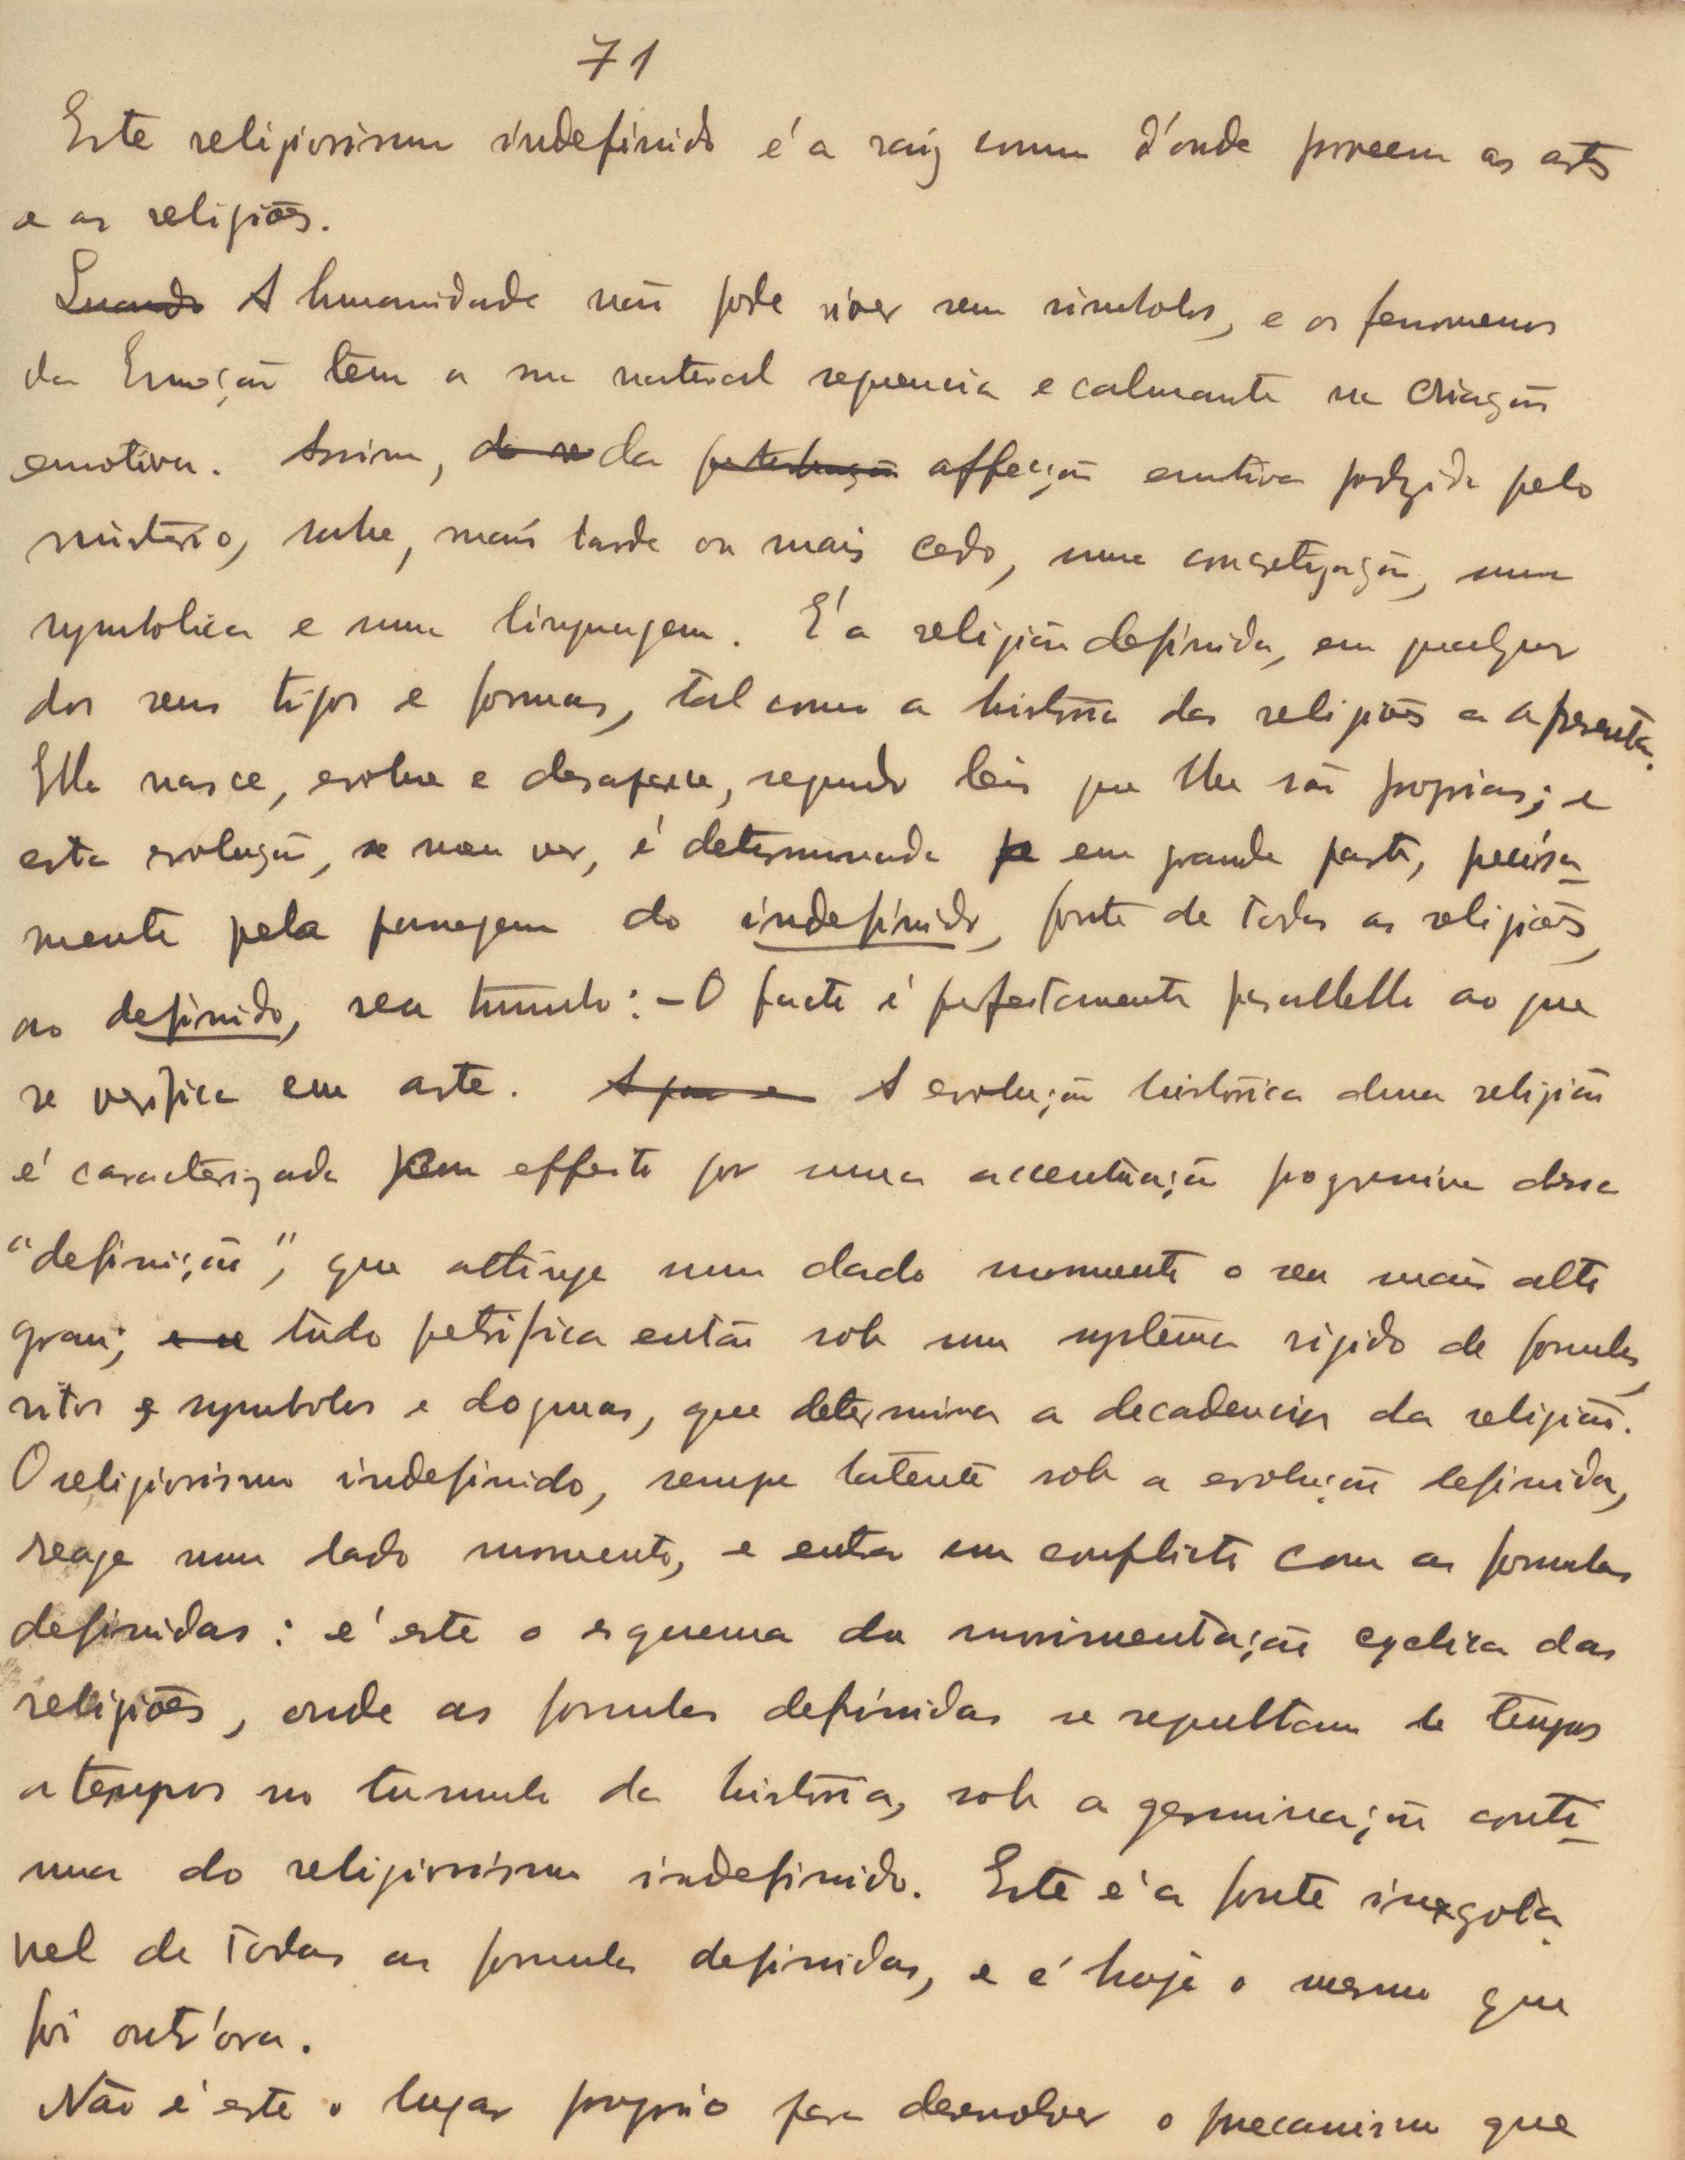 71
Este religiosismo indefinido é a raiz comum d'onde proveem as artes
e as religiões.
Quando A humanidade não pode viver sem simbolos, e os fenomenos
da Emoção têm a sua natural sequencia e calmante na criação
emotiva. Assim, da se da perturbação affecção emotiva produzida pelo
misterio, sahe, mais tarde ou mais cedo, uma concretização, uma
symbolica e uma linguagem. É a religião definida, em qualquer
dos seus tipos e formas, tal como a historia das religiões a apresenta.
Ella nasce, evolue e desaparece, segundo leis que lhe são proprias; e
esta evolução, a meu ver, é determinada pe em grande parte, precisa-
mente pela passagem do indefinido, fonte de todas as religiões,
ao definido, seu tumulo: - O facto é perfeitamente parallello ao que
se verifica em arte. A evolução historica duma religião
é caracterizada em effeito por uma accentuação progressiva dessa
"definição", que attinge num dado momento o seu mais alto
grau; e se tudo petrifica então sob um systema rigido de formulas,
ritos e symbolos e dogmas, que determina a decadencia da religião.
O religiosismo indefinido, sempre latente sob a evolução definida,
reage num dado momento, e entra em conflicto com as formulas
definidas: é este o esquema da movimentação cyclica das
religiões, onde as formulas definidas se sepultam de tempos
a tempos no tumulo da historia, sob a germinação conti-
nua do religiosismo indefinido. Este é a fonte inexgota-
vel de todas as formulas definidas, e é hoje o mesmo que
foi outr'ora.
Não é este o lugar proprio para desenvolver o mecanismo que